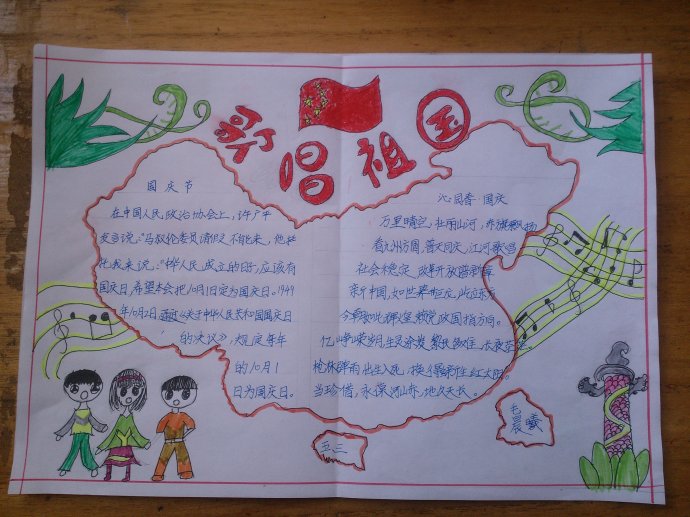 歌唱祖国
国庆节
在中国人民政治协会上，许广平
发言说：“马叙伦委员请假不能来，他托
我来说，中华人民成立的日子，应该有
国庆日，希望本会把10月1日定为国庆日。1949
年10月2日，通过《关于中华人民共和国国庆日
的决议》，规定每年
的10月1
日为国庆日。
沁园春·国庆
万里晴空，壮丽山河，赤旗飘扬
看九州方圆，普天同庆，江河歌唱
社会稳定，改革开放
新中国，如世界
今朝
政国指方向。
亿
岁月
枪林弹雨出生入死，换得新生红太阳。
当珍惜，永保河山赤，地久天长。
五三
毛晨曦